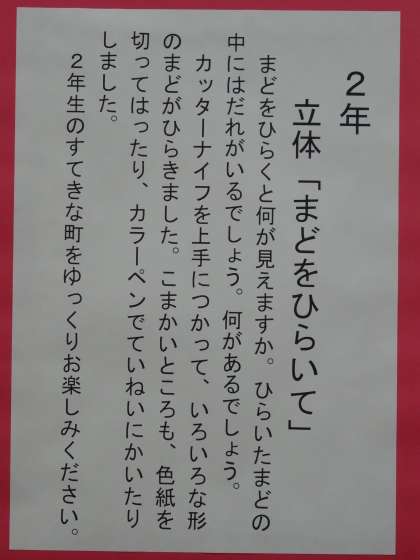 ２年
立体「まどをひらいて」
まどをひらくと何が見えますか。ひらいたまどの
中にはだれがいるでしょう。何があるでしょう。
カッターナイフを上手につかって、いろいろな形
のまどがひらきました。こまかいところも、色紙を
切ってはったり、カラーペンでていねいにかいたり
しました。
２年生のすてきな町をゆっくりお楽しみください。